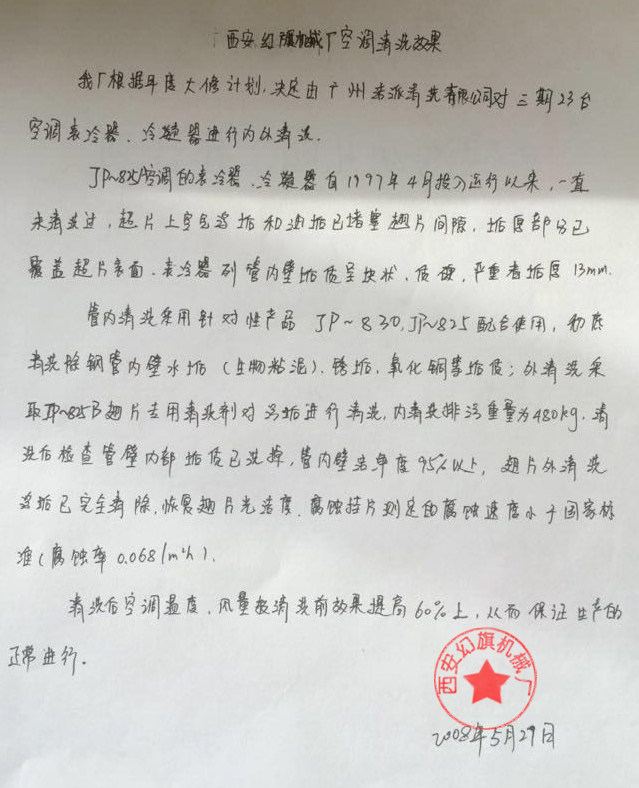 西安幻旗机械厂空调清洗效果
我厂根据年度大修计划,决定由广州来派清洗有限公司对三期23台
空调表冷器、冷凝器进行内外清洗.
JP~825空调的表冷器、冷凝器自1997年4月投入运行以来,一直
未清洗过,翅片上空气污垢和油垢已堵塞翅片间隙,垢厚部分已
覆盖翅片表面、表冷器列管内壁垢质呈块状、质硬,严重者垢厚13mm.
管内清洗采用针对性产品JP~830,JP~825配合使用,彻底
清洗除铜管内壁水垢(生物粘泥)、锈垢、氧化铜等垢质;外清洗采
取JP~825B翅片专用清洗剂对污垢进行清洗,内清洗排污重量为480kg.清
洗后检查管壁内部垢质已洗掉,管内壁洁净度95%以上,翅片外清洗
污垢已完全清除,恢复翅片光洁度.腐蚀挂片测定的腐蚀速度小于国家标
准(腐蚀率0.068/m²h).
清洗后空调温度、风量较清洗前效果提高60%上,从而保证生产的
正常进行.
西安幻旗机械厂
2008年5月29日